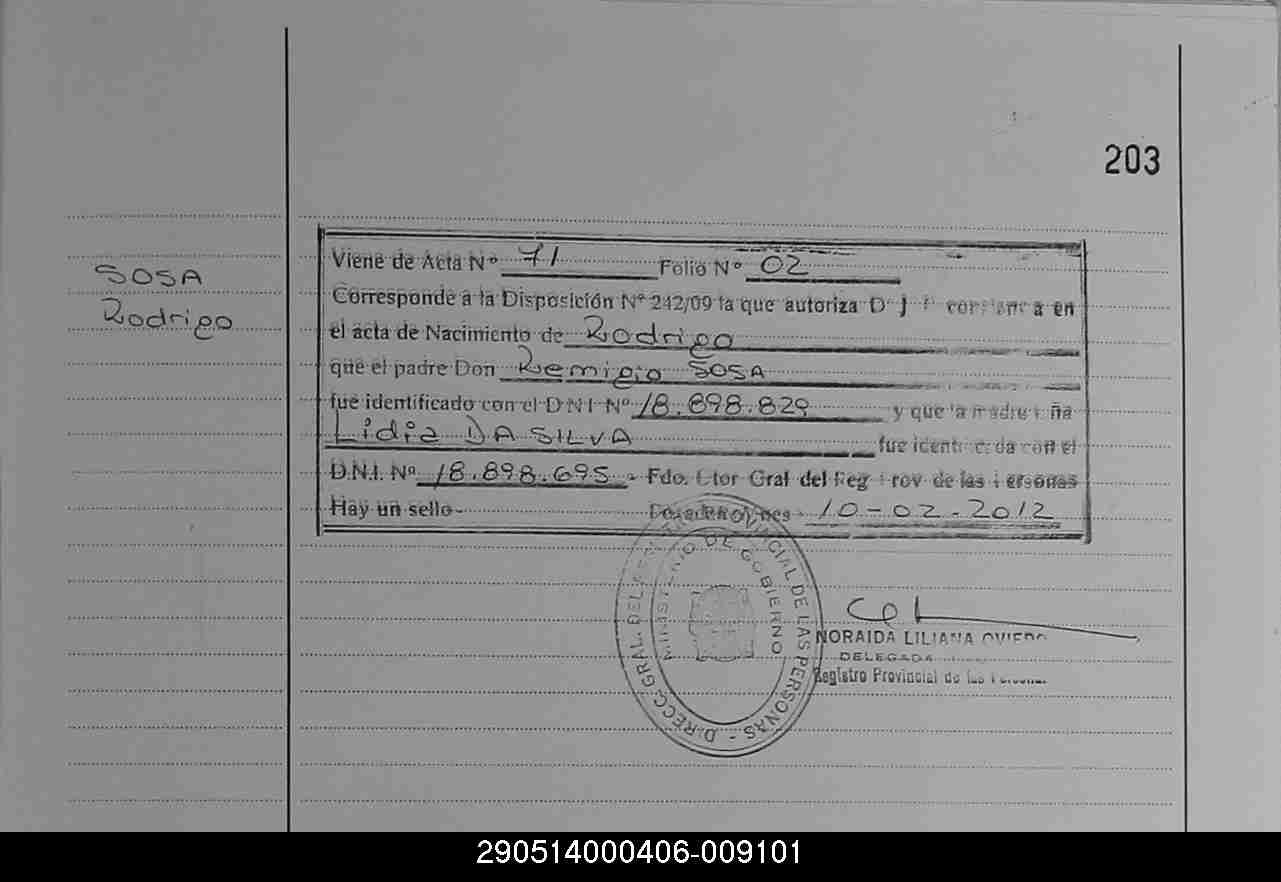 203
SOSA
Rodrigo
Viene de Acta Nº 71 Folio Nº 02
Corresponde a la Disposición Nº 242/09 la que autoriza a en
el acta de Nacimiento de Rodrigo
que el padre Don Remigio SOSA
fue identificado con el DNI Nº 18.898.829 y que la madre
Lidia DA SILVA fue con el
D.N.I. Nº 18.898.695 - Fdo. Gral del Reg de las
Hay un sello - 10-02-2012
DIRECC. GRAL. DEL PROVINCIAL DE LAS PERSONAS -
MINISTERIO DE GOBIERNO
NORAIDA LILIANA OVIEDO
DELEGADA
Registro Provincial de las
290514000406-009101